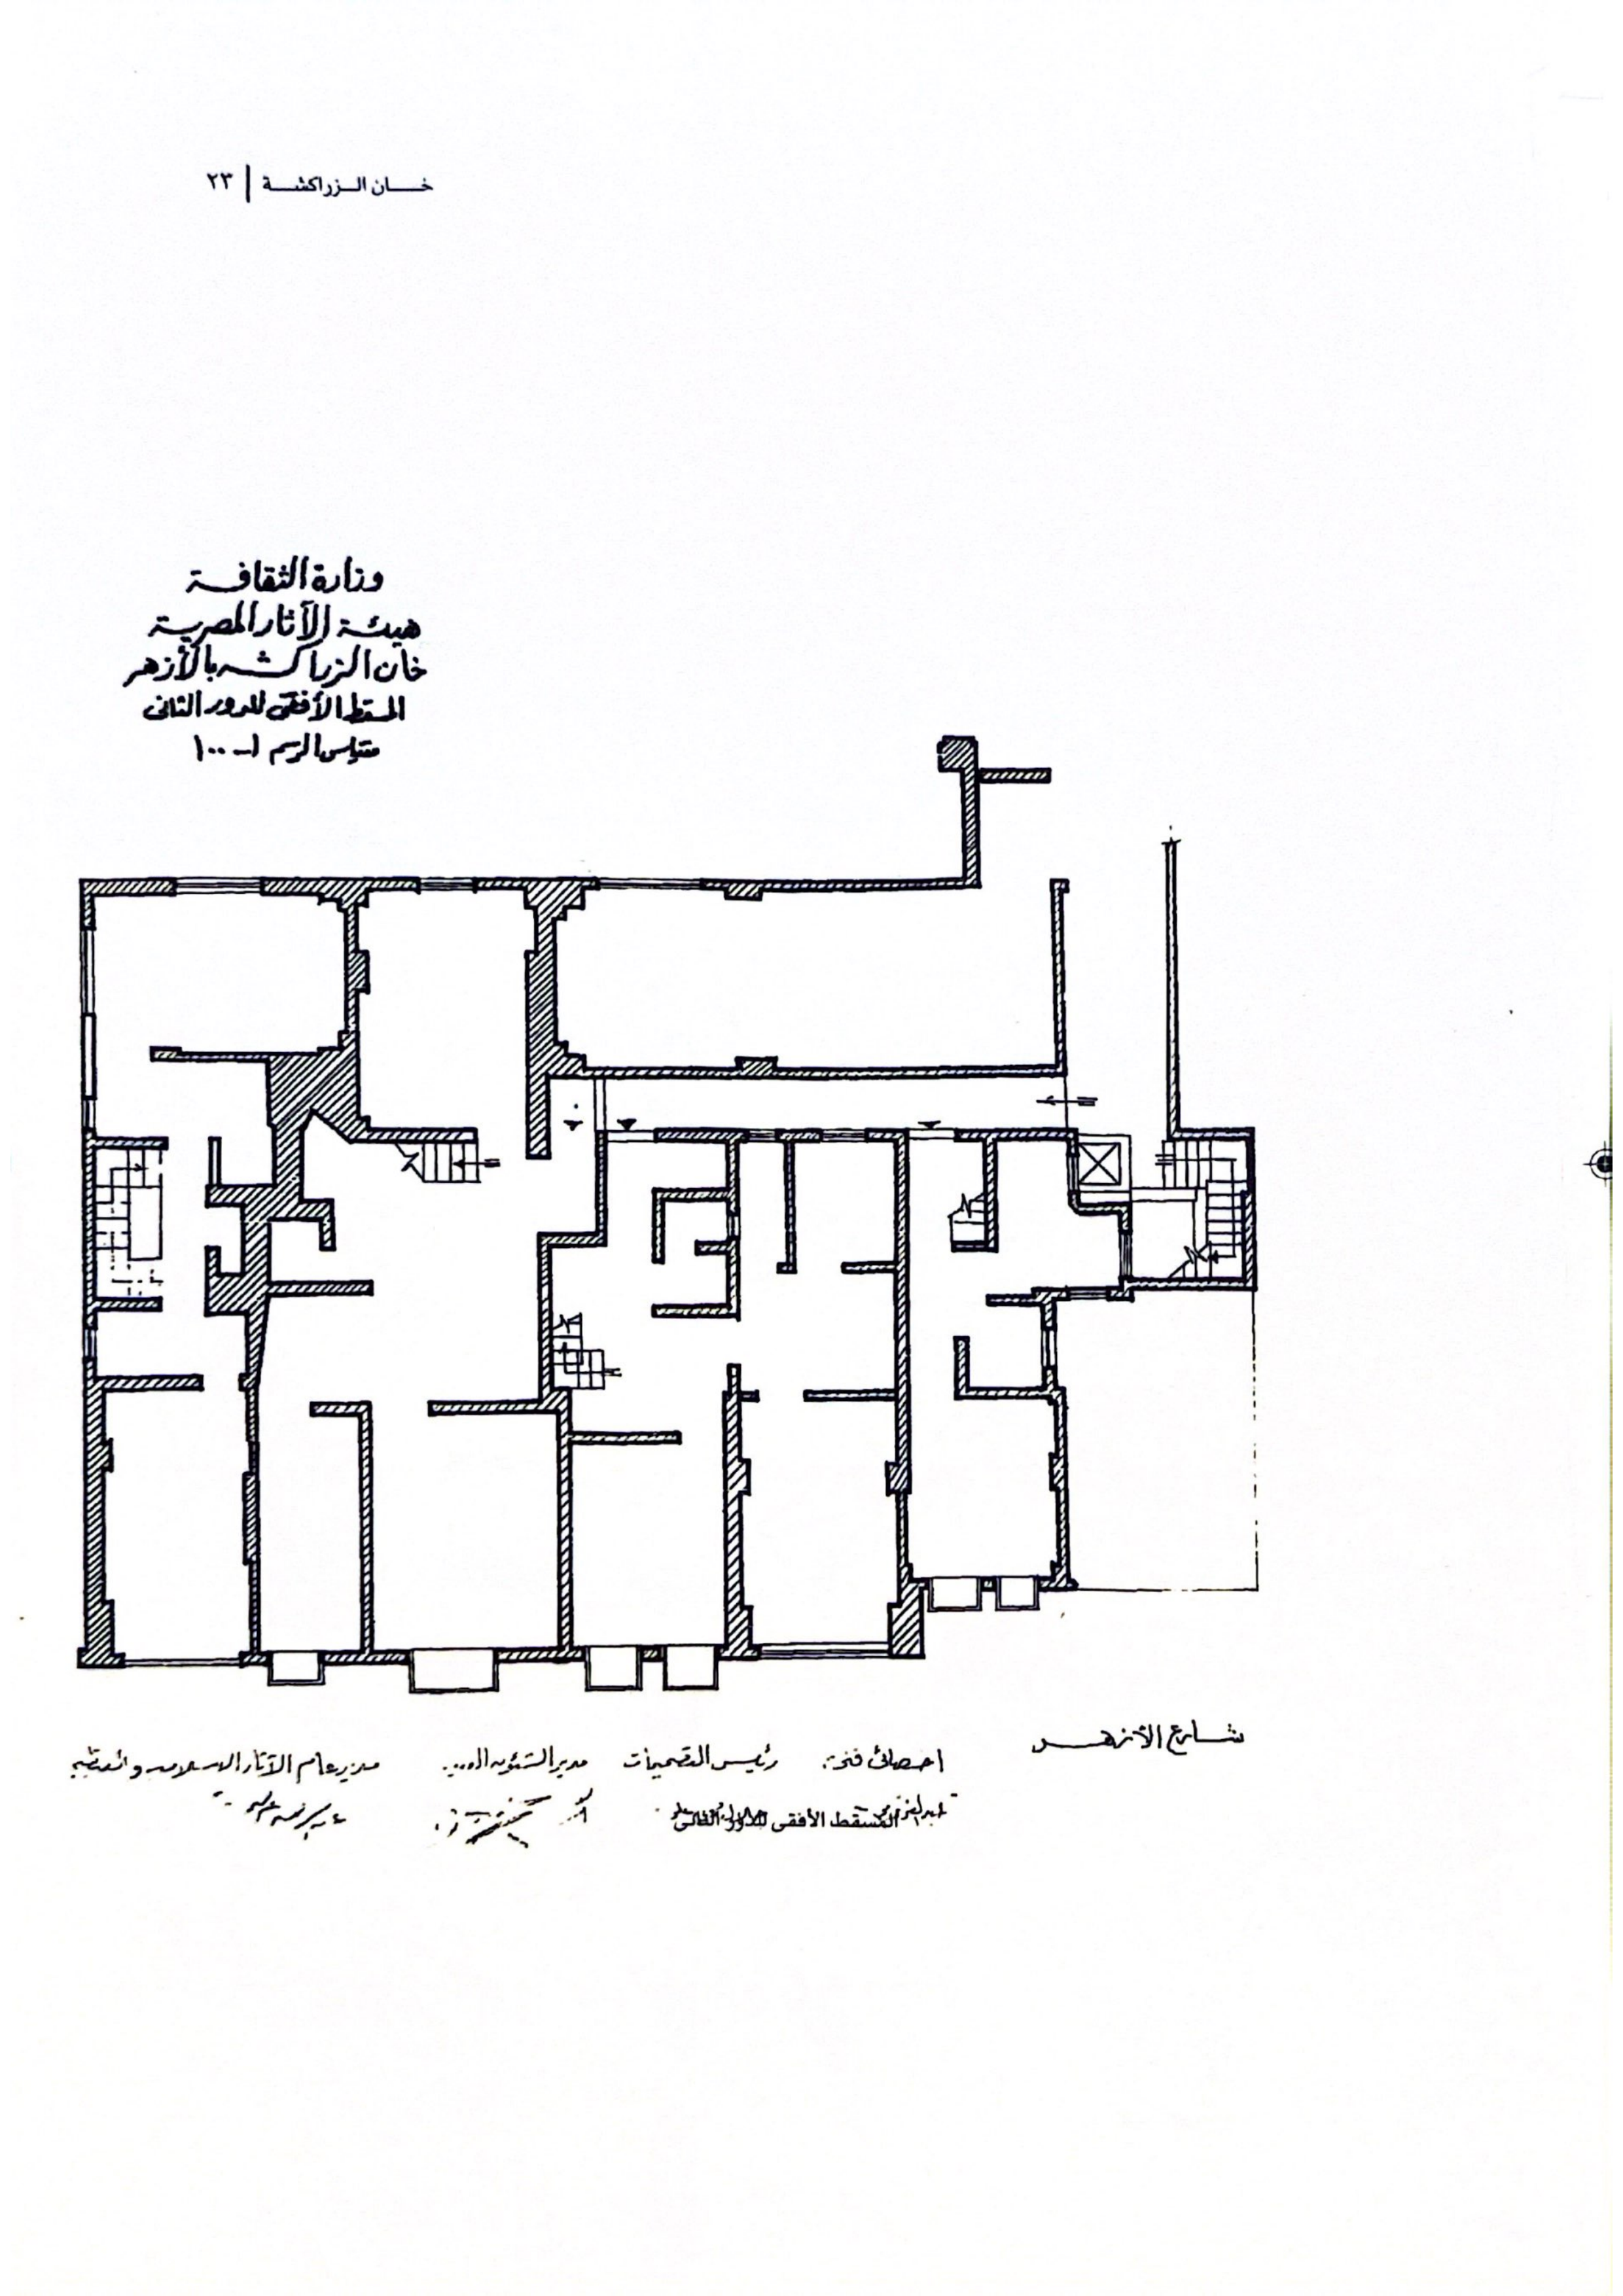 خان الزراكشة | ٢٣
وزارة الثقافة
هيئة الآثار المصرية
خان الزراكشه بالأزهر
المسقط الأفقى للدور الثانى
مقياس الرسم ١ - ١٠٠
شارع الأزهر
اخصائى فنى رئيس التصميمات مدير الشئون مدير عام الآثار الاسلاميه والقبطيه
المسقط الأفقى